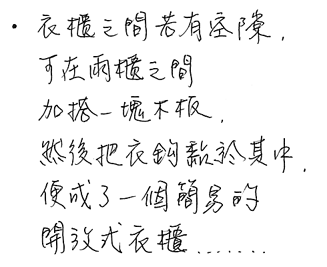 • 衣櫃之間若有空隙,
可在兩櫃之間
加搭一塊木板,
然後把衣鈎黏於其中,
便成了一個簡易的
開放式衣櫃.......